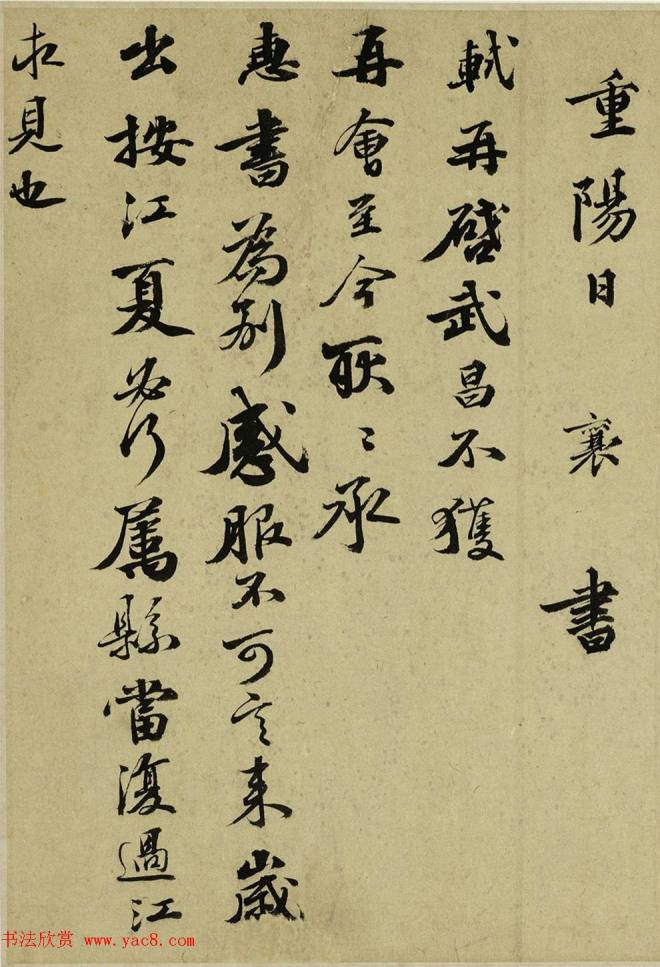 重陽日 襄 書
軾再啓武昌不獲
再會至今耿〻承
惠書為別感服不可言来歲
出按江夏必行屬縣當復過江
求見也
书法欣赏 www.yac8.com